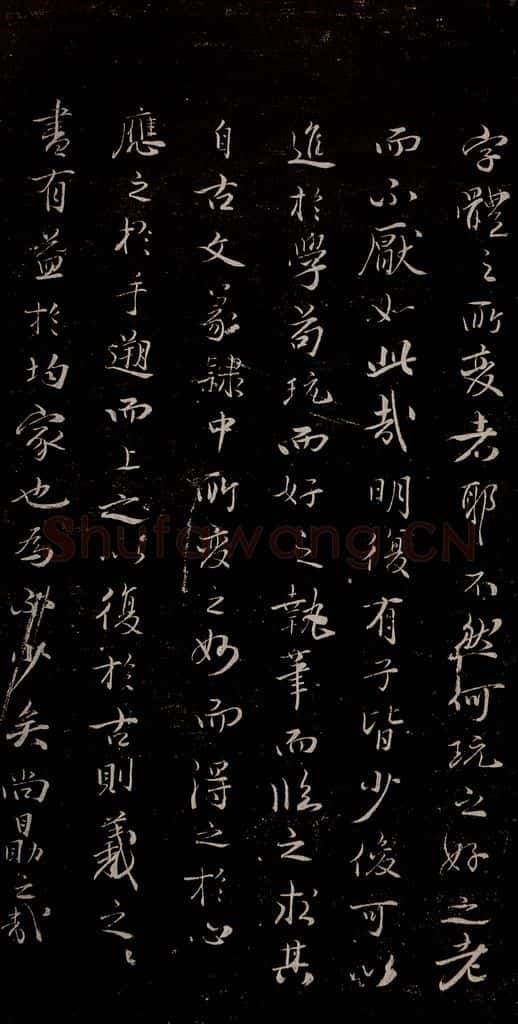 字體之所变者耶不然何玩之好之老
而不厭如此哉明復有子皆少俊可以
進於學苟玩而好之執筆而臨之求其
自古文篆隸中所变之妙而得之於心
應之於手遡而上之以復於古則羲之之
畫有益於均家也為不少矣尚勗之哉
Shufawang.CN